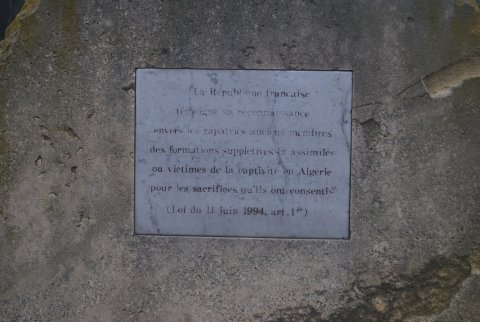 La République française
témoigne sa reconnaissance
envers les rapatriés anciens membres
des formations supplétives et assimilés
ou victimes de la captivité en Algérie
pour les sacrifices qu'ils ont consentis
(Loi du 11 juin 1994, art.1er)